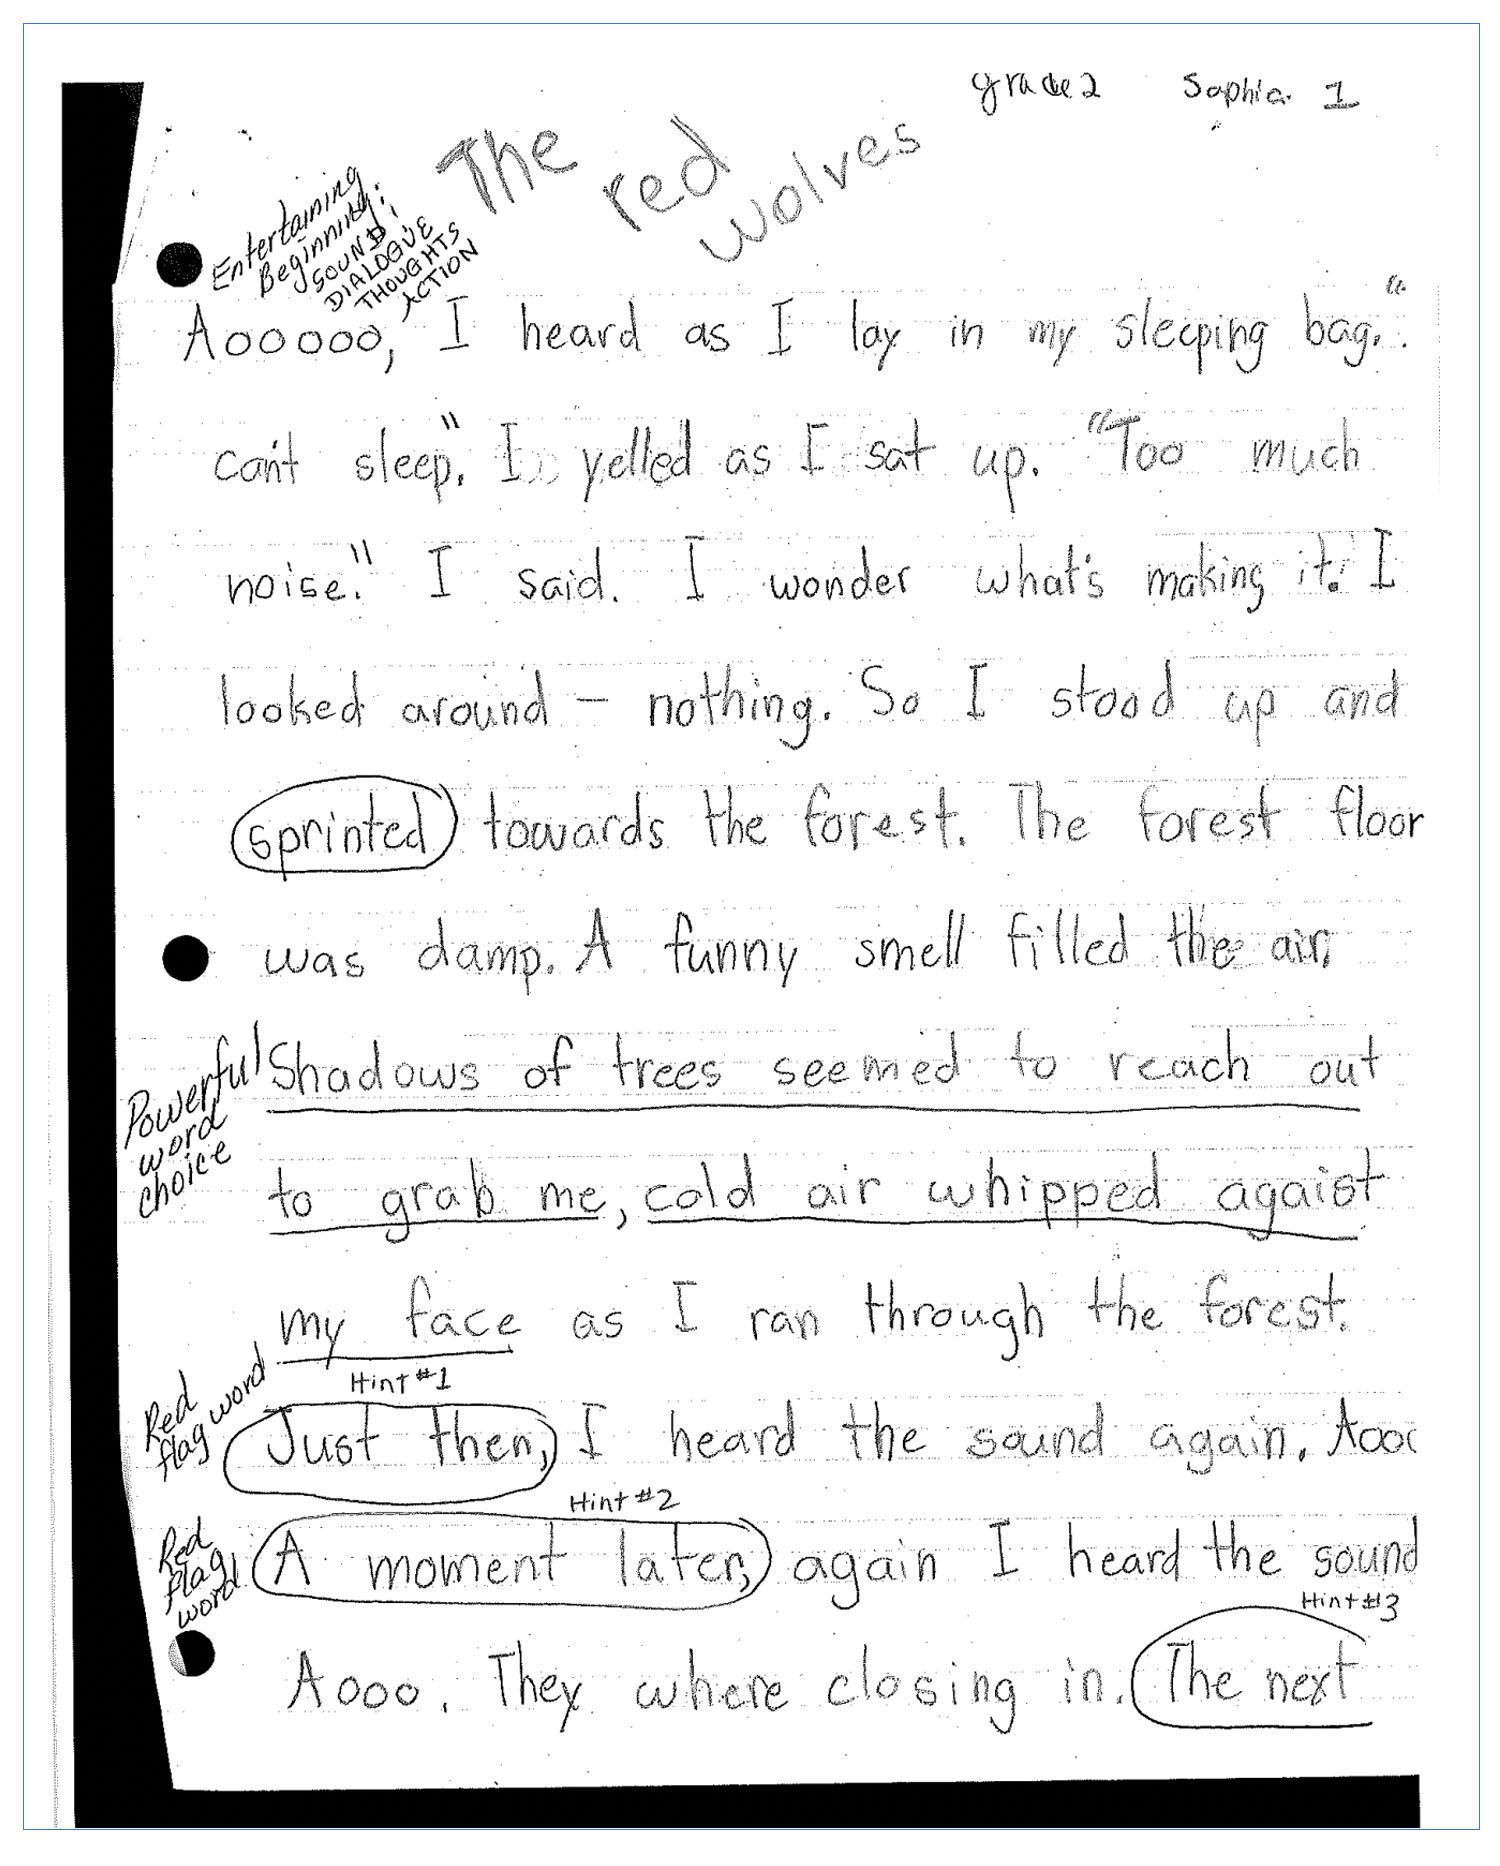 grade 2 Sophia 1
The red wolves
Entertaining
Beginning:
SOUND,
DIALOGUE
THOUGHTS
ACTION
Aooooo, I heard as I lay in my sleeping bag. "
can't sleep." I yelled as I sat up. "Too much
noise." I said. I wonder what's making it. I
looked around – nothing. So I stood up and
sprinted towards the forest. The forest floor
was damp. A funny smell filled the air.
Powerful
word
choice
Shadows of trees seemed to reach out
to grab me, cold air whipped agaist
my face as I ran through the forest.
Red
flag word
Hint #1
Just then, I heard the sound again. Aooo
Red
flag
word
Hint #2
A moment later, again I heard the sound
Hint #3
Aooo. They where closing in. The next